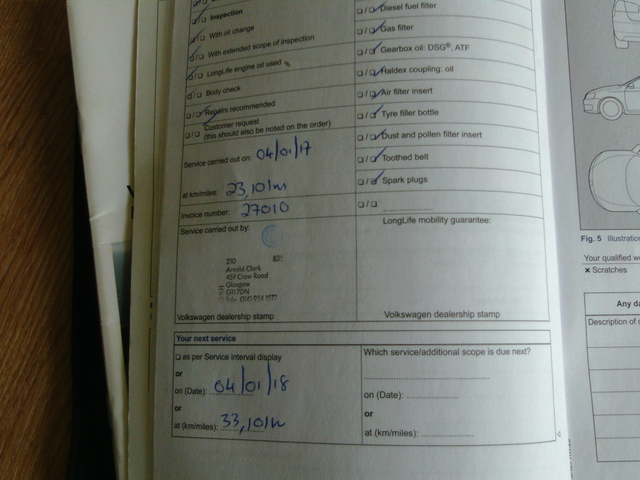 Inspection
With oil change
With extended scope of inspection
LongLife engine oil used
Body check
Repairs recommended
Customer request
(this should also be noted on the order)
Service carried out on: 04/01/17
at km/miles: 23,101m
Invoice number: 27010
Service carried out by:
210
Arnold Clark
459 Crow Road
Glasgow
G11 7DN
Volkswagen dealership stamp
Diesel fuel filter
Gas filter
Gearbox oil: DSG®, ATF
Haldex coupling: oil
Air filter insert
Tyre filler bottle
Dust and pollen filter insert
Toothed belt
Spark plugs
LongLife mobility guarantee:
Volkswagen dealership stamp
Your next service
as per Service interval display
or
on (Date): 04/01/18
or
at (km/miles): 33,101m
Which service/additional scope is due next?
on (Date):
or
at (km/miles):
Fig. 5 Illustration
Your qualified
× Scratches
Any
Description of